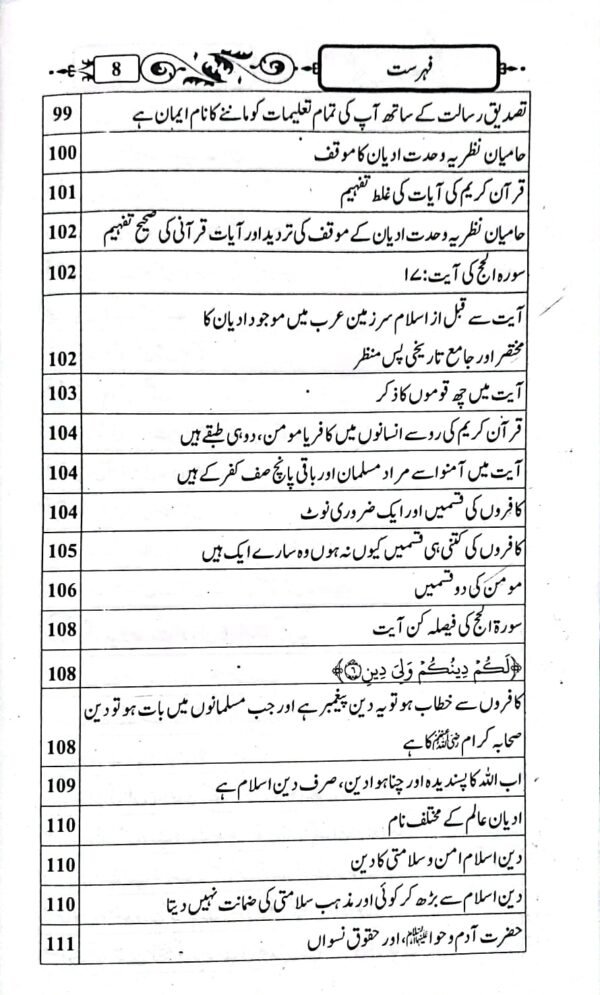 فہرست
8
تصدیق رسالت کے ساتھ آپ کی تمام تعلیمات کو ماننے کا نام ایمان ہے 99
حامیان نظریہ وحدت ادیان کا موقف 100
قرآن کریم کی آیات کی غلط تفہیم 101
حامیان نظریہ وحدت ادیان کے موقف کی تردید اور آیات قرآنی کی صحیح تفہیم 102
سورہ الحج کی آیت: ۱۷ 102
آیت سے قبل از اسلام سرزمین عرب میں موجود ادیان کا
مختصر اور جامع تاریخی پس منظر 102
آیت میں چھ قوموں کا ذکر 103
قرآن کریم کی رو سے انسانوں میں کافر یا مومن، دو ہی طبقے ہیں 104
آیت میں آمنوا سے مراد مسلمان اور باقی پانچ صف کفر کے ہیں 104
کافروں کی قسمیں اور ایک ضروری نوٹ 104
کافروں کی کتنی ہی قسمیں کیوں نہ ہوں وہ سارے ایک ہیں 105
مومن کی دو قسمیں 106
سورۃ الحج کی فیصلہ کن آیت 108
﴿لَكُمْ دِينُكُمْ وَلِيَ دِينِ ۶﴾ 108
کافروں سے خطاب ہو تو یہ دین پیغمبر ہے اور جب مسلمانوں میں بات ہو تو دین
صحابہ کرام رضی اللہ عنہم کا ہے 108
اب اللہ کا پسندیدہ اور چنا ہوا دین، صرف دین اسلام ہے 109
ادیان عالم کے مختلف نام 110
دین اسلام امن و سلامتی کا دین 110
دین اسلام سے بڑھ کر کوئی اور مذہب سلامتی کی ضمانت نہیں دیتا 110
حضرت آدم و حوا علیہما السلام، اور حقوق نسواں 111